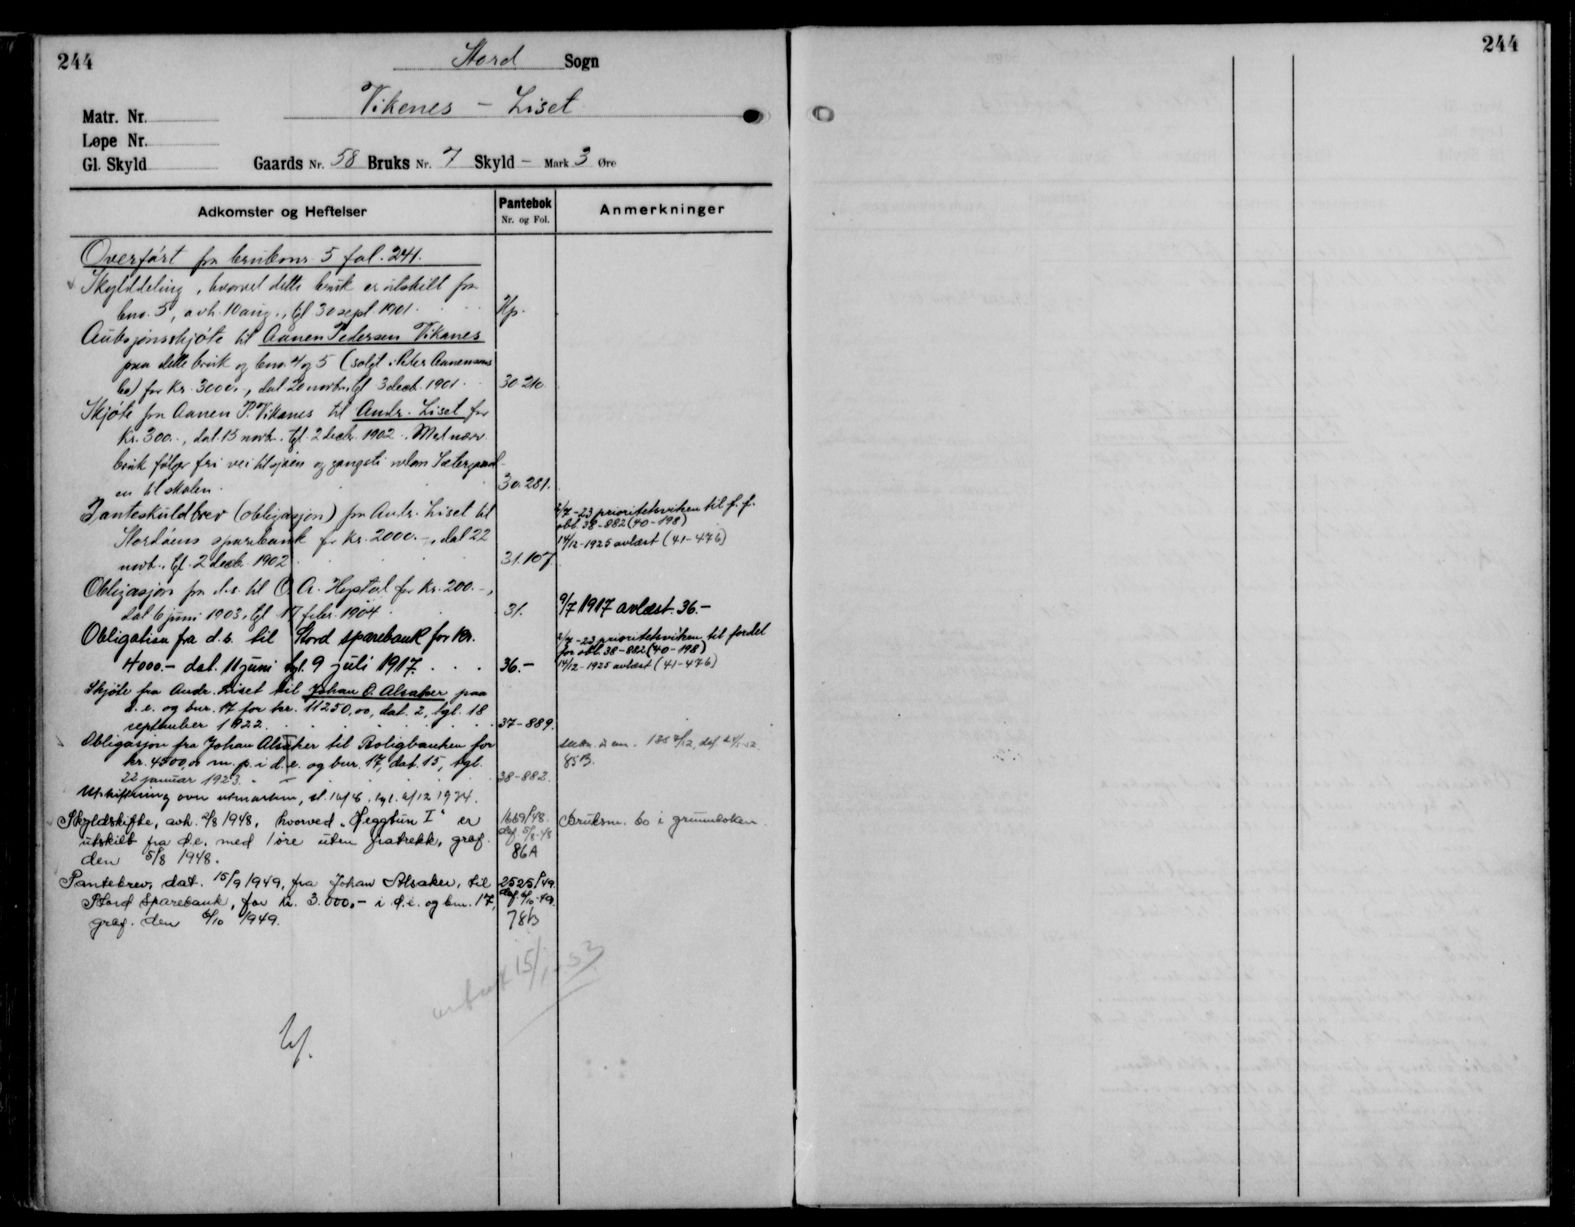 244
Stord Sogn
Vikenes - Liset
Matr. Nr.
Løpe Nr.
Gl. Skyld Gaards Nr. 58 Bruks Nr. 7 Skyld - Mark 3 Øre
Adkomster og Heftelser
Pantebok
Nr. og Fol.
Anmerkninger
Overført fra bruksnr. 5 fol. 241.
Skylddeling, hvorved dette bruk er utskilt fra
bnr. 5, avh. 10 aug., tgl 30 sept. 1901.
Auksjonsskjøte til Aanen Pedersen Vikanes
paa dette bruk og bnr. 4 og 5 (solgt i Peter Aanensens
bo) for kr. 3000., dat. 20 novbr. tgl 3 decb. 1901. 30 210
Skjøte fra Aanen P. Vikanes til Andr. Liset for
kr. 300.-, dat. 13 novb. tgl. 2 decbr. 1902. Med nærv.
bruk følger fri vei til sjøen og gangsti
en til skolen. 30.281.
Panteskuldbrev (obligasjon) fra Andr. Liset til
Stordøens sparebank for kr. 2000.-, dat 22
novb., tgl. 2 decb. 1902 31.107
2/7-23 prioritetsviken til f. f.
obl. 38-882 (40-198)
14/12-1925 avlæst (41-476)
Obligasjon fra d.s. til O. A. Hystad for kr. 200.-,
dat 6 juni 1903, tgl 17 febr. 1904. 31. 9/7 1917 avlæst. 36.-
Obligation fra d.s. til Stord sparebank for kr.
4000.- dat. 11 juni tgl. 9 juli 1917. . . . 36.-
2/7-23 prioritetsviken til fordel
for obl. 38-882 (40-198)
14/12-1925 avlæst (41-476)
Skjøte fra Andr. Liset til Johan O. Alsaker paa
d.e. og bnr. 17 for kr. 11250,00, dat. 2, tgl. 18
september 1922. 37-889.
Obligasjon fra Johan Alsaker til Boligbanken for
kr. 4500,00 m. p. i d.e. og bnr. 17, dat. 15, tgl.
22 januar 1923. 38-882.
85B.
Utskiftning over utmarken, sl. 16/6, tgl. 4/12 1934.
Skyldskifte, avh. 2/8 1948, hvorved "Deggtun I" er
utskilt fra d.e. med 1 øre uten fratrekk, graf.
den 5/8 1948.
1669/48.
daf. 5/8-48
86A
Bruksnr. 60 i grunnboken.
Pantebrev, dat. 15/9 1949, fra Johan Alsaker, til
Stord Sparebank, for kr. 3.000,- i d.e. og bnr. 17,
graf. den 6/10 1949.
2525/49.
daf. 6/10-49.
78B
244